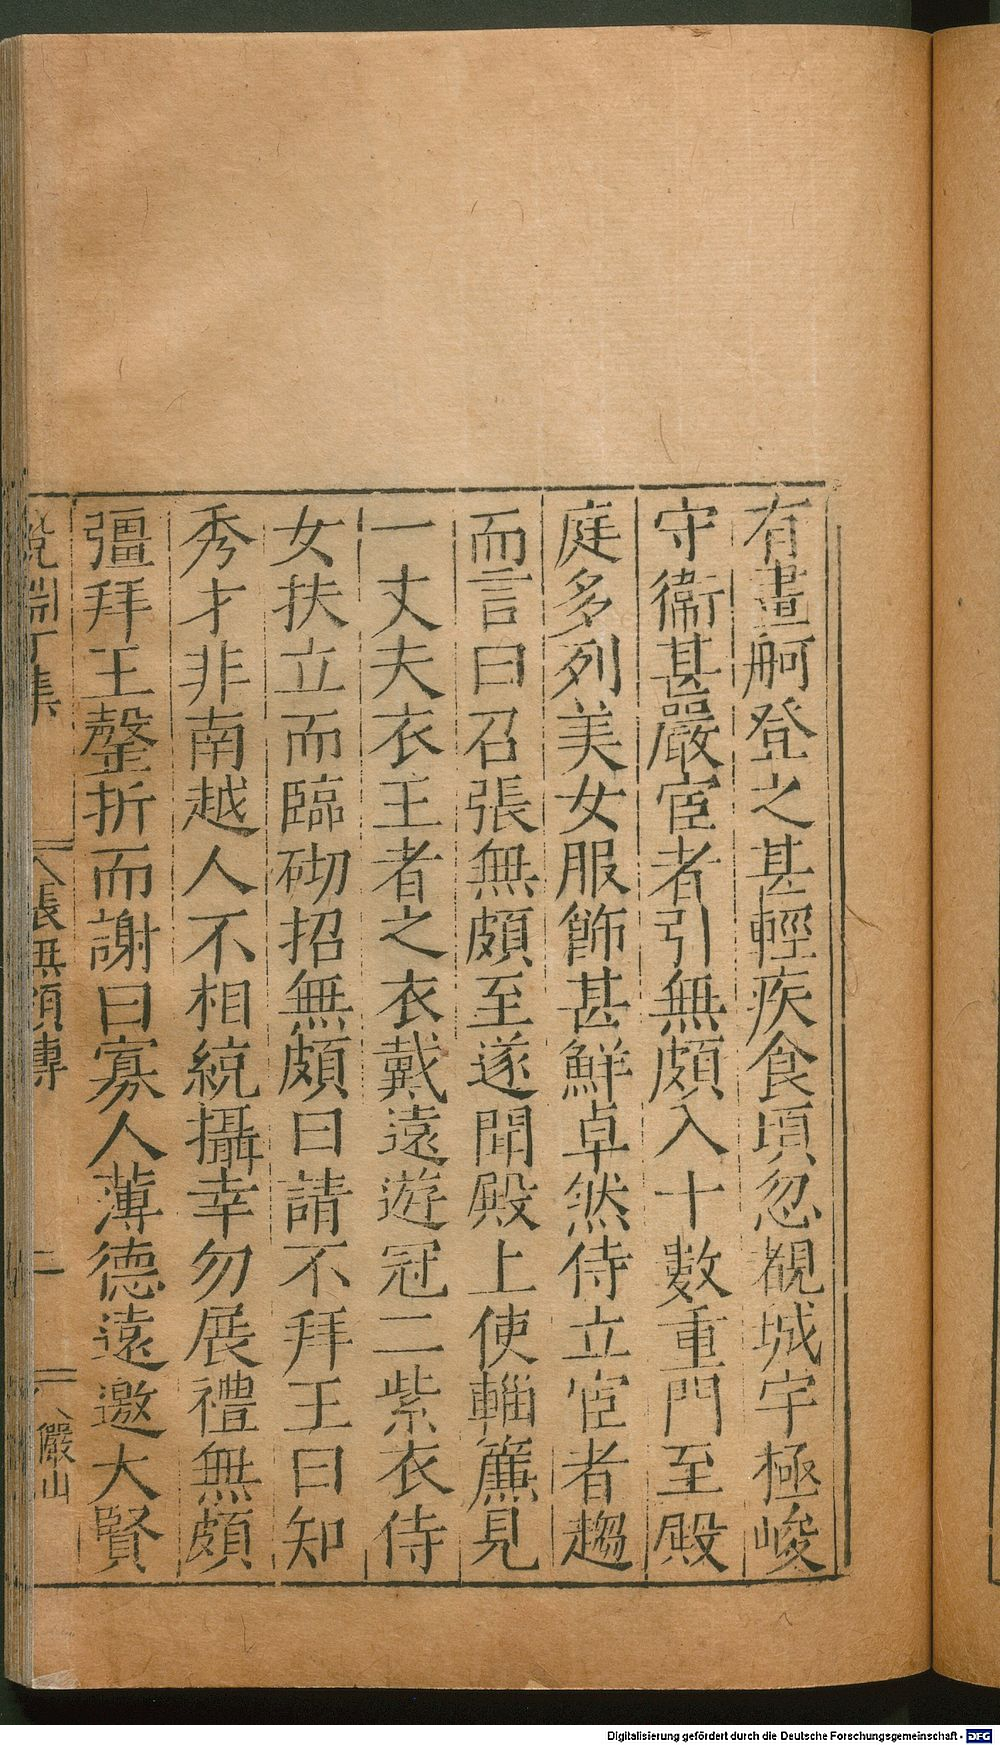 有畫舸登之甚輕疾食頃忽覩城宇極峻
守衞甚嚴宦者引無頗入十數重門至殿
庭多列美女服飾甚鮮卓然侍立宦者趨
而言曰召張無頗至遂聞殿上使軸簾見
一丈夫衣王者之衣戴遠遊冠二紫衣侍
女扶立而臨砌招無頗曰請不拜王曰知
秀才非南越人不相統攝幸勿展禮無頗
彊拜王罄折而謝曰寡人薄德遠邀大賢
說淵丁集 張無頗傳 二 儼山
Digitalisierung gefördert durch die Deutsche Forschungsgemeinschaft - DFG